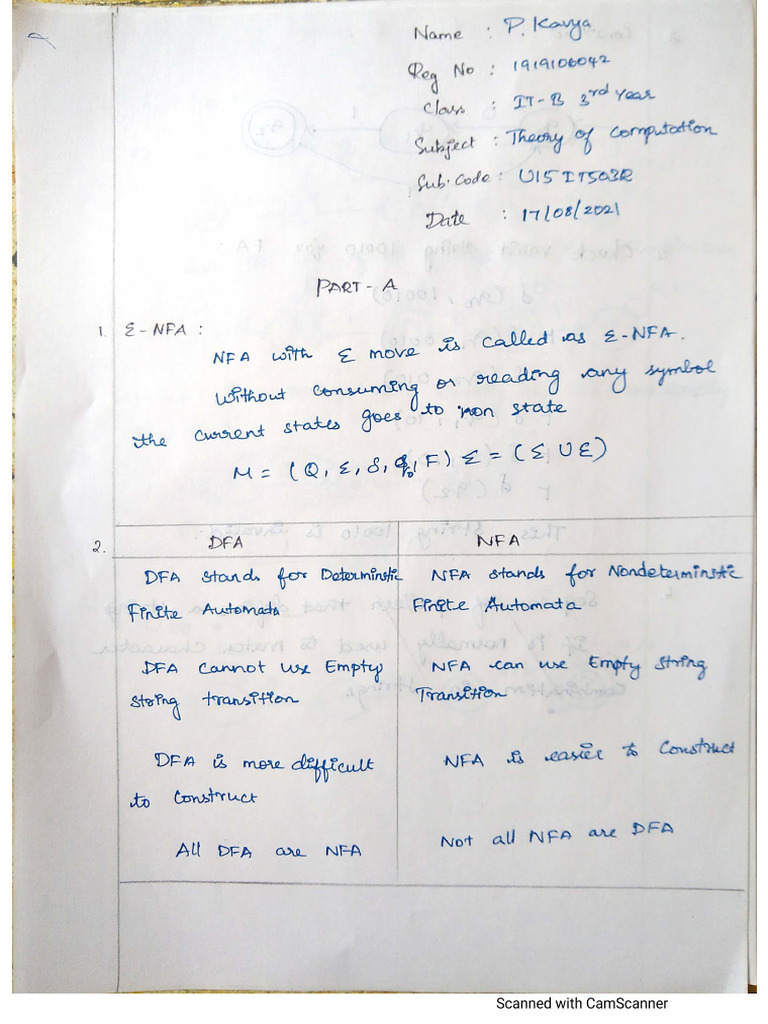 Name : P. Kavya
Reg No : 1919106042
Class : IT-B 3rd Year
Subject : Theory of Computation
Sub.Code : U15IT503R
Date : 17/08/2021
PART - A
1. Ɛ-NFA :
NFA with Ɛ move is called as Ɛ-NFA.
Without consuming or reading any symbol
the current states goes to non state
M = (Q, Σ, δ, q0, F) Σ = (Σ U Ɛ)
2. DFA NFA
DFA stands for Deterministic NFA stands for Nondeterministic
Finite Automata Finite Automata
DFA cannot use Empty NFA can use Empty String
String transition Transition
DFA is more difficult NFA is easier to Construct
to Construct
All DFA are NFA Not all NFA are DFA
Scanned with CamScanner